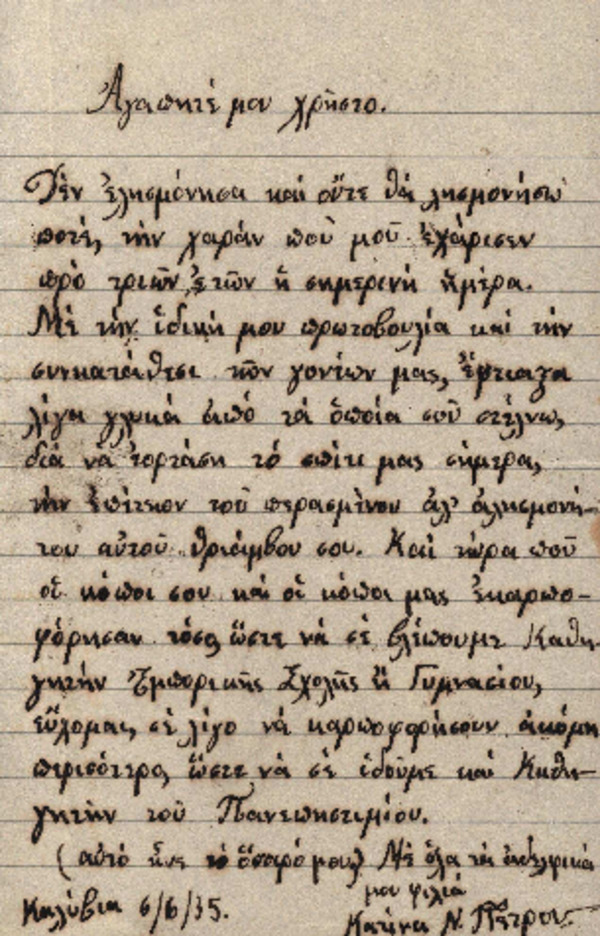 Ἀγαπητέ μου χρῆστο.
Δὲν ἐλησμόνησα καὶ οὔτε θὰ λησμονήσω
ποτέ, τὴν χαρὰν ποὺ μοῦ ἐχάρισεν
πρὸ τριῶν ἐτῶν ἡ σημερινὴ ἡμέρα.
Μὲ τὴν ἰδική μου πρωτοβουλία καὶ τὴν
συνκατάθεσι τῶν γονέων μας, ἔφτιαγα
λίγα γλυκὰ ἀπὸ τὰ ὁποῖα σοῦ στέλνω,
διὰ νὰ ἑορτάση τὸ σπίτι μας σήμερα,
τὴν ἐπέτειον τοῦ περασμένου ἀλλ' ἀλησμονή-
του αὐτοῦ θριάμβου σου. Καὶ τώρα ποῦ
οἱ κόποι σου καὶ οἱ κόποι μας ἐκαρπο-
φόρησαν τόσο, ὥστε νὰ σὲ βλέπουμε Καθη-
γητὴν Ἐμπορικῆς Σχολῆς ἢ Γυμνασίου,
εὔχομαι, σὲ λίγο νὰ καρποφορήσουν ἀκόμη
περισότερο, ὥστε νὰ σὲ ἰδοῦμε καὶ Καθη-
γητὴν τοῦ Πανεπιστιμίου.
(αὐτὸ εἶνε τὸ ὄναρό μου) Μὲ ὅλα τὰ ἀδελφικά
μου φιλιά
Καλύβια 6/6/35.
Κατίνα Ν. Πέτρου